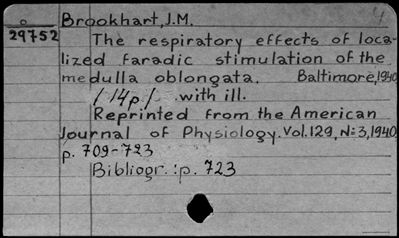 4
o Brookhart, J.M.
29752 The respiratory effects of loca-
lized faradic stimulation of the
medulla oblongata. Baltimore, 1940
/14p./ with ill.
Reprinted from the American
Journal of Physiology. Vol. 129, N:3, 1940,
p. 709-723
Bibliogr.: p. 723